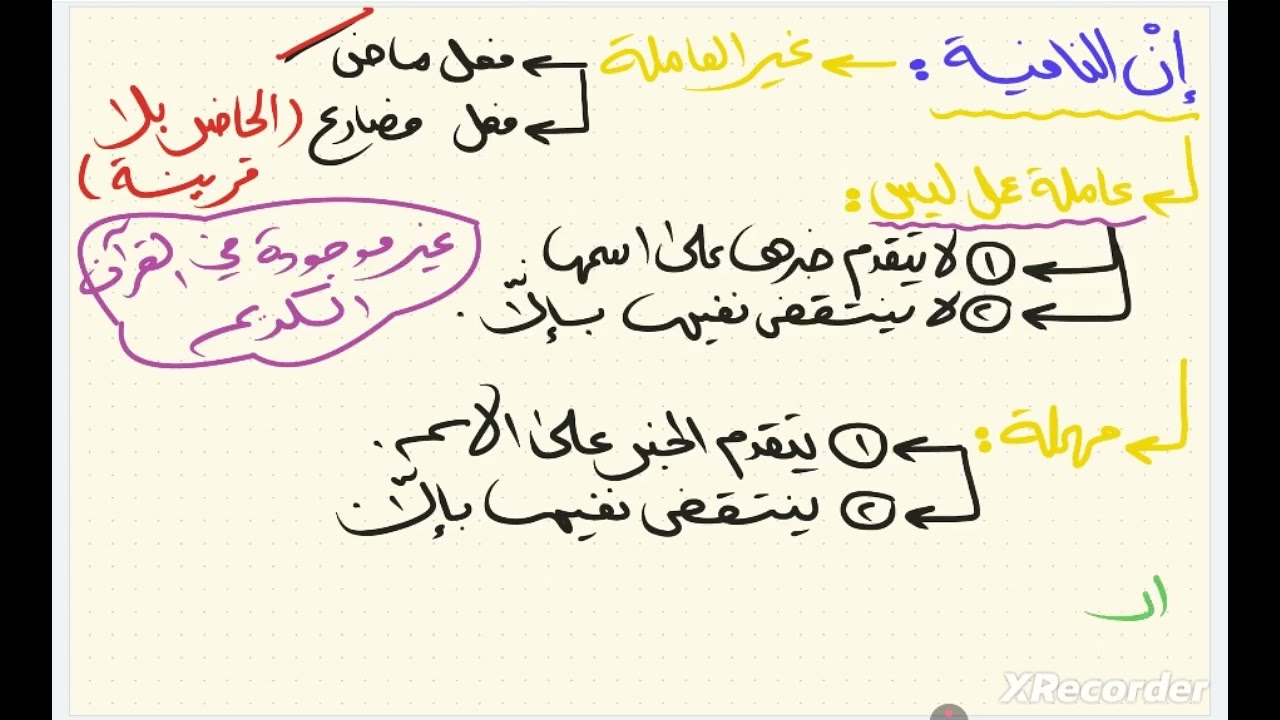 إنْ النافية : ← غير العاملة ← فعل ماضٍ
← فعل مضارع (الحاضر بلا
قرينة)
← عاملة عمل ليس :
← ① لا يتقدم خبرها على اسمها
← ② لا ينتقض نفيها بإلّا .
غير موجودة في القرآن
الكريم
← مهملة :
← ① يتقدم الخبر على الاسم .
← ② ينتقض نفيها بإلّا
ان
XRecorder